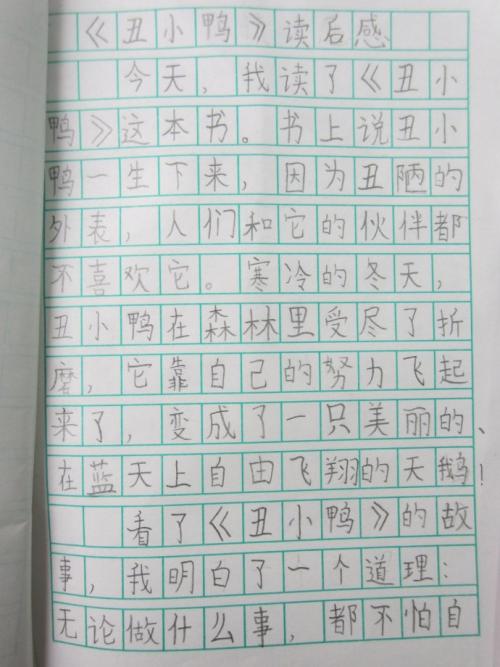 《丑小鸭》读后感
今天，我读了《丑小
鸭》这本书。书上说丑小
鸭一生下来，因为丑陋的
外表，人们和它的伙伴都
不喜欢它。寒冷的冬天，
丑小鸭在森林里受尽了折
磨，它靠自己的努力飞起
来了，变成了一只美丽的、
在蓝天上自由飞翔的天鹅！
看了《丑小鸭》的故
事，我明白了一个道理：
无论做什么事，都不怕自